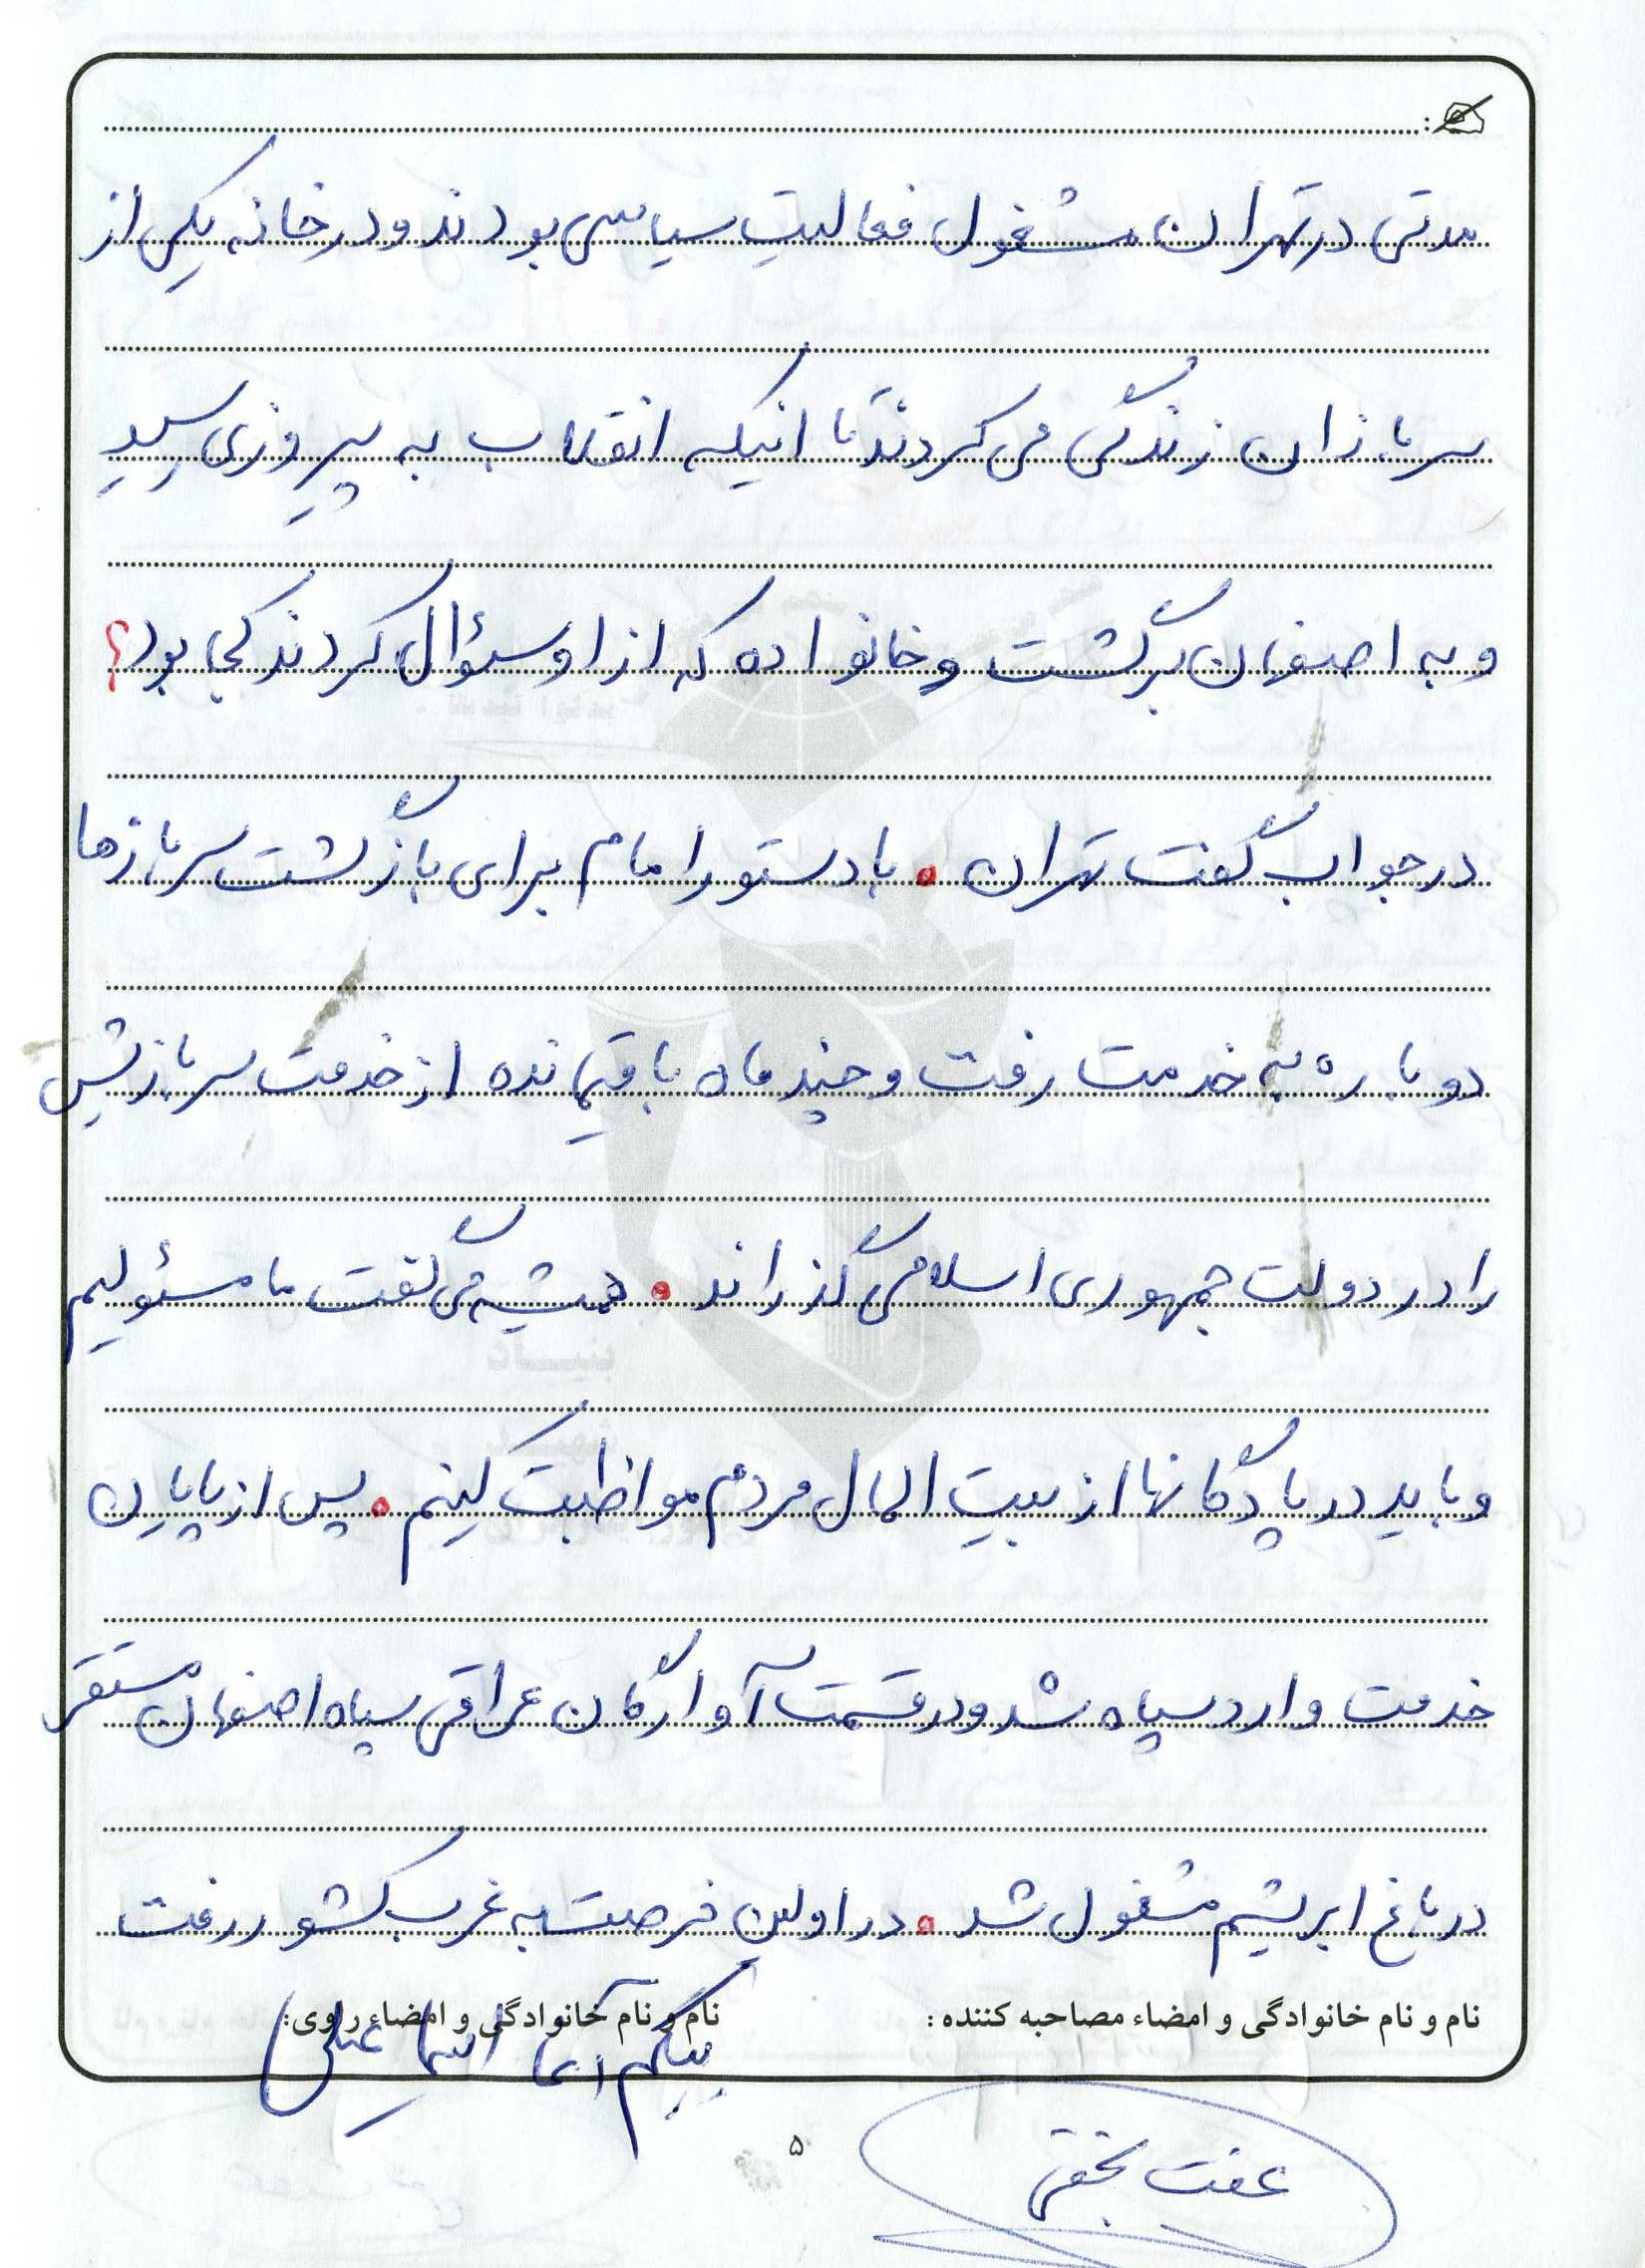 مدتی در تهران مشغول فعالیت سیاسی بودند و در خانه یکی از
سربازان زندگی می کردند تا اینکه انقلاب به پیروزی رسید
و به اصفهان برگشت و خانواده که از او سؤال کردند کجا بود؟
در جواب گفت تهران . با دستور امام برای بازگشت سربازها
دوباره به خدمت رفت و چند ماه باقیمانده از خدمت سربازیش
را در دولت جمهوری اسلامی گذراند . همیشه می گفت ما مسئولیم
و باید در پادگانها از بیت المال مردم مواظبت کنیم . پس از پایان
خدمت وارد سپاه شد و در قسمت آوارگان عراقی سپاه اصفهان مستقر
در باغ ابریشم مشغول شد . در اولین فرصت به غرب کشور رفت
نام و نام خانوادگی و امضاء مصاحبه کننده :
نام و نام خانوادگی و امضاء راوی:
بیگم آغا اسماعیلی
عفت نجفی
۵